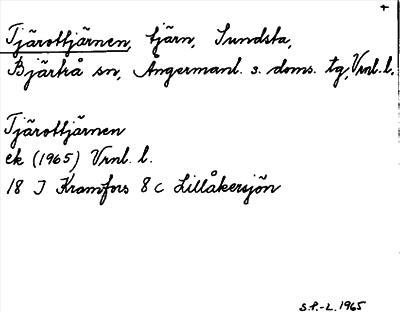 +
Tjärottjärnen, tjärn, Sundsta,
Bjärtrå sn, Ångermanl. s. doms. tg, Vrnl. l.
Tjärottjärnen
ek (1965) Vrnl. l.
18 J Kramfors 8 c Lillåkersjön
S.P.-L. 1965